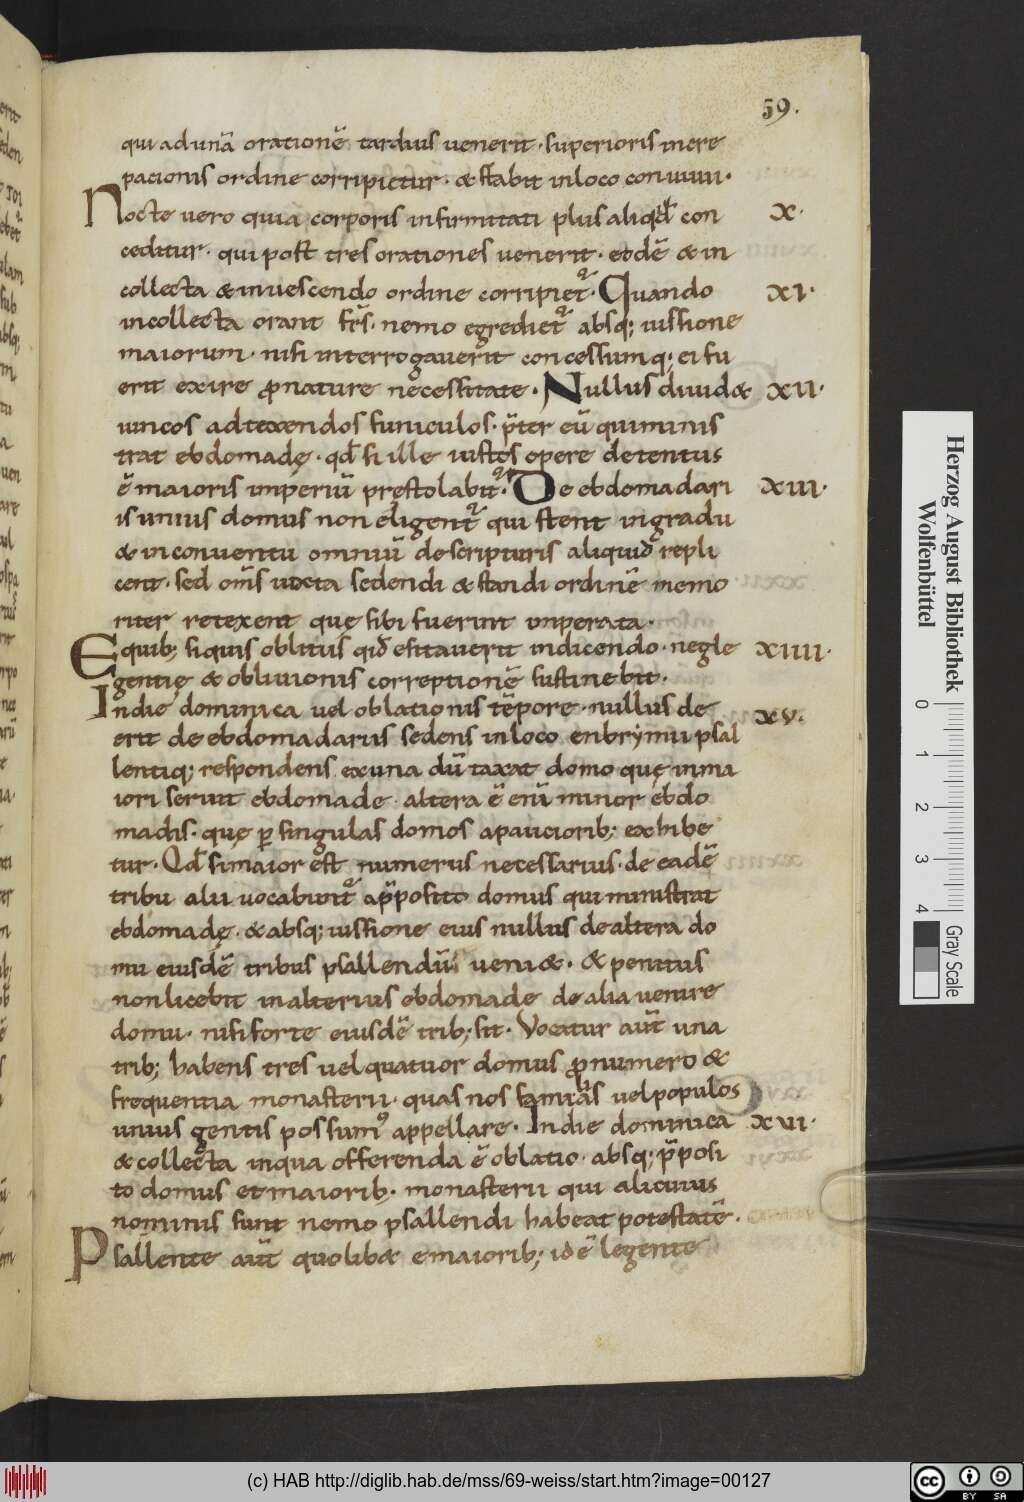 59.
qui ad unā orationē tardius uenerit · superioris incre
pationis ordine corripietur · & stabit in loco conuiuii ·
Nocte uero quia corporis infirmitati plus aliqđ con X·
ceditur · qui post tres orationes uenerit · eodē & in
collecta & in uescendo ordine corripiet᷑ · Quando XI·
in collecta orant frs̄ · nemo egrediet᷑ absq; iussione
maiorum · nisi interrogauerit concessumq; ei fu
erit exire ꝓ nature necessitate · Nullus diuid& XII·
iuncos ad texendos funiculos · p̄ter eū qui minis
trat ebdomadę · qđ si ille iusto opere detentus
ē maioris imperiū pręstolabit᷑ · De ebdomadari XIII·
is unius domus non eligent᷑ qui stent in gradu
& in conuentu omniū de scripturis aliquid repli
cent · sed om̄s iuxta sedendi & standi ordinē memo
riter retexent quę sibi fuerint imperata ·
E quib; si quis oblitus qid esitauerit in dicendo · negle XIIII·
gentię & obliuionis correptionē sustinebit ·
In die dominica uel oblationis tēpore · nullus de XV·
erit de ebdomadariis sedens in loco enbrymii psal
lentiq; respondens ex una dū taxat domo quę in ma
iori seruit ebdomade · altera ē enī minor ebdo
madis · quę ꝑ singulas domos a pauciorib; exhibe
tur · Qđ si maior est numerus necessarius · de eadē
tribu alii uocabunt᷑ a p̄posito domus qui ministrat
ebdomadę · & absq; iussione eius nullus de altera do
mu eiusdē tribus psallendū ueni& · & penitus
non licebit in alterius ebdomade de alia uenire
domu · nisi forte eiusdē trib; sit · Vocatur aūt una
trib; habens tres uel quatuor domus ꝓ numero &
frequentia monasterii · quas nos familias uel populos
unius gentis possumꝰ appellare · In die dominica XVI·
& collecta in qua offerenda ē oblatio · absq; p̄posi
to domus et maiorib; · monasterii qui alicuius
nominis sunt nemo psallendi habeat potestatē ·
Psallente aūt quolib& e maiorib; id ē legente
Herzog August Bibliothek
Wolfenbüttel
0 1 2 3 4
Gray Scale
(c) HAB http://diglib.hab.de/mss/69-weiss/start.htm?image=00127
cc BY SA